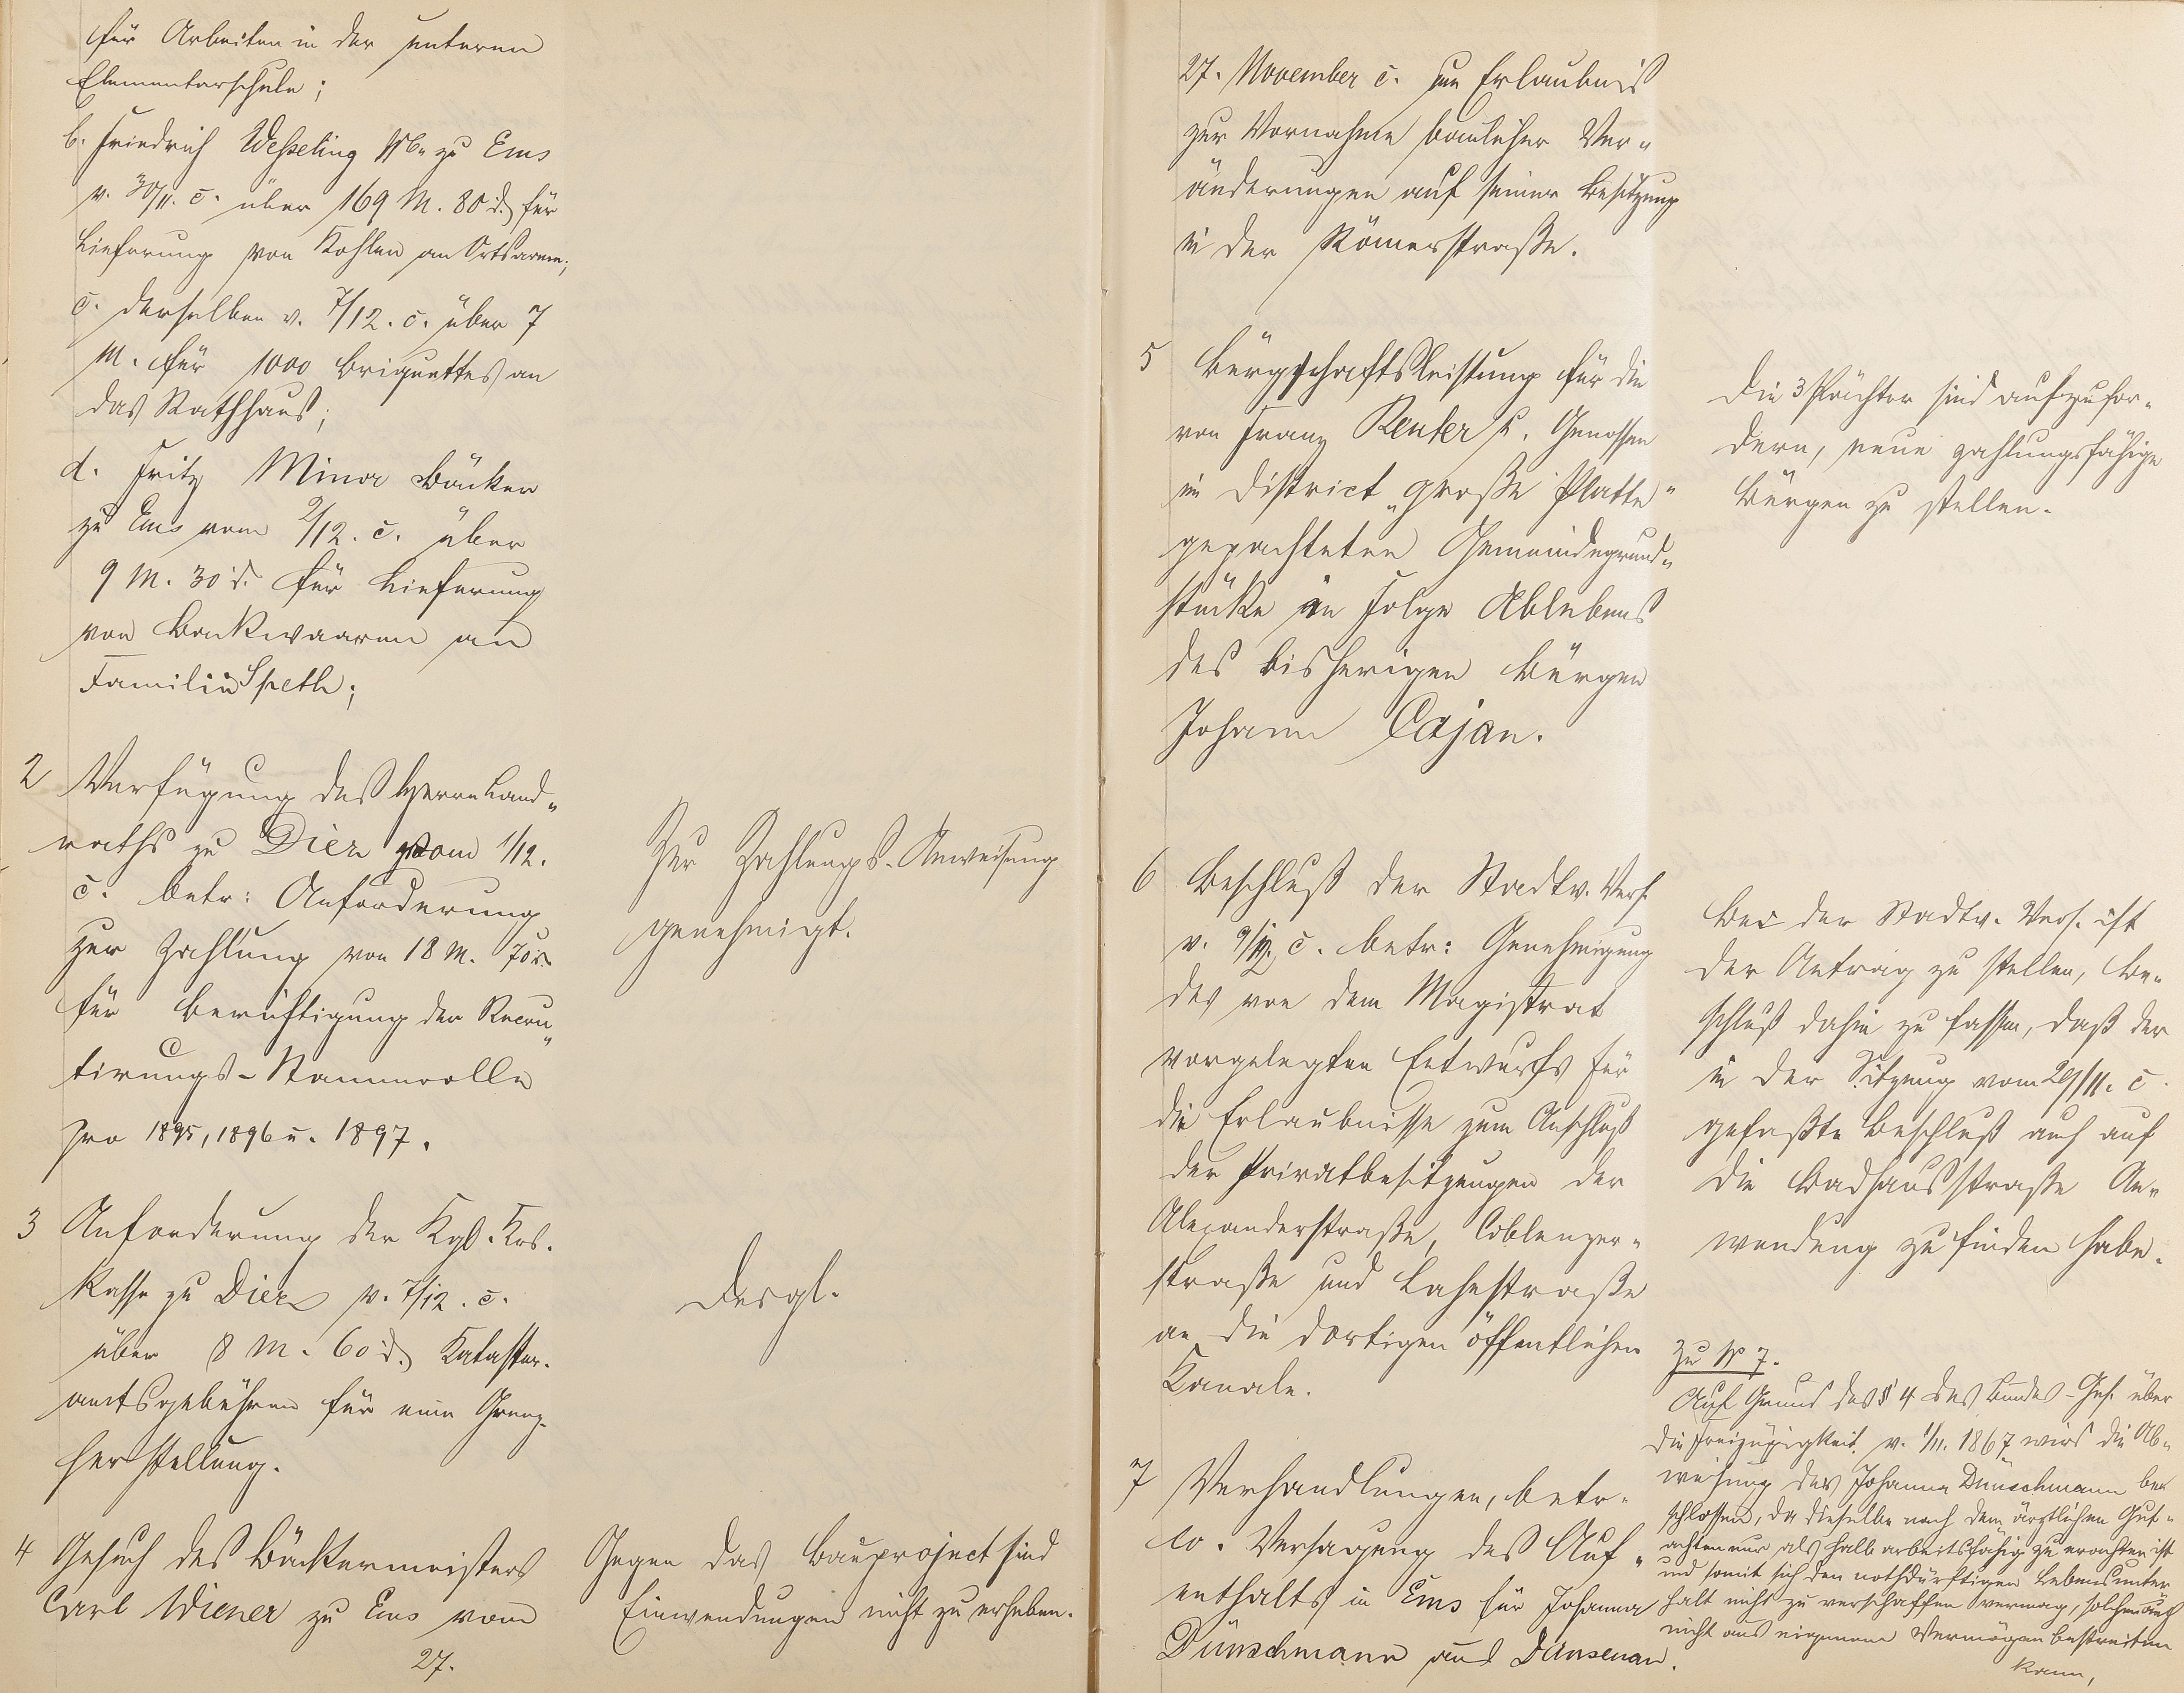 für Arbeiten in der unteren
Elementarschule;
b. Friedrich Wesseling Wb. zu Ems
v. 30/11. c. über 169 M. 80 d. für
Lieferung von Kohlen an Ortsarme;
c. derselben v. 7/12. c. über 7
M. für 1000 Briquettes an
das Rathhaus;
d. Fritz Minor Bäcker
zu Ems vom 2/12. c. über
9 M. 30 d. für Lieferung
von Backwaaren an
Familie Speth;
2 Verfügung des Herrn Land„
raths zu Diez vom 1/12.
c. betr: Anforderung
zur Zahlung von 18 M. 70 d.
für Berichtigung der Recru„
tirungs-Stammrolle
pro 1895, 1896 u. 1897.
Zur Zahlungs-Anweisung
genehmigt.
3 Anforderung der Kgl. Krs.
Kasse zu Diez v. 7/12. c.
über 8 M. 60 d. Kataster-
amtsgebühren für eine Grenz-
herstellung.
Desgl.
4 Gesuch des Bäckermeisters
Carl Wiener zu Ems vom
27.
Gegen das Bauproject sind
Einwendungen nicht zu erheben.
27. November c. um Erlaubniß
zur Vornahme baulicher Ver„
änderungen auf seiner Besitzung
in der Römerstraße.
5 Bürgschaftsleistung für die
von Franz Reuter u. Genossen
im District „große Platte"
gepachteten Gemeindegrund„
stücke in Folge Ablebens
des bisherigen Bürgen
Johann Cajan.
Die 3 Pächter sind aufzufor„
dern, neue zahlungsfähige
Bürgen zu stellen.
6 Beschluß der Stadtv. Vers.
v. 9/12. c. betr: Genehmigung
des von dem Magistrat
vorgelegten Entwurfs für
die Erlaubnisse zum Anschluß
der Privatbesitzungen der
Alexanderstraße, Coblenzer„
straße und Lahnstraße
an die dortigen öffentlichen
Kanäle.
Bei der Stadtv. Vers. ist
der Antrag zu stellen, Be„
schluß dahin zu fassen, daß der
in der Sitzung vom 29/11. c.
gefaßte Beschluß auch auf
die Badhausstraße An„
wendung zu finden habe.
7 Verhandlungen, betr.
Versagung des Auf„
enthalts in Ems für Johanna
Dünschmann aus Dausenau.
Zu № 7.
Auf Grund des § 4 des Bundes-Ges. über
die Freizügigkeit v. 1/11. 1867 wird die Ab„
weisung der Johanna Dünschmann be
schlossen, da dieselbe nach dem ärztlichen Gut„
achten nur als halb arbeitsfähig zu erachten ist
und somit sich den nothdürftigen Lebensunter
halt nicht zu verschaffen vermag, solchen auch
nicht aus eigenem Vermögen bestreiten
kann,